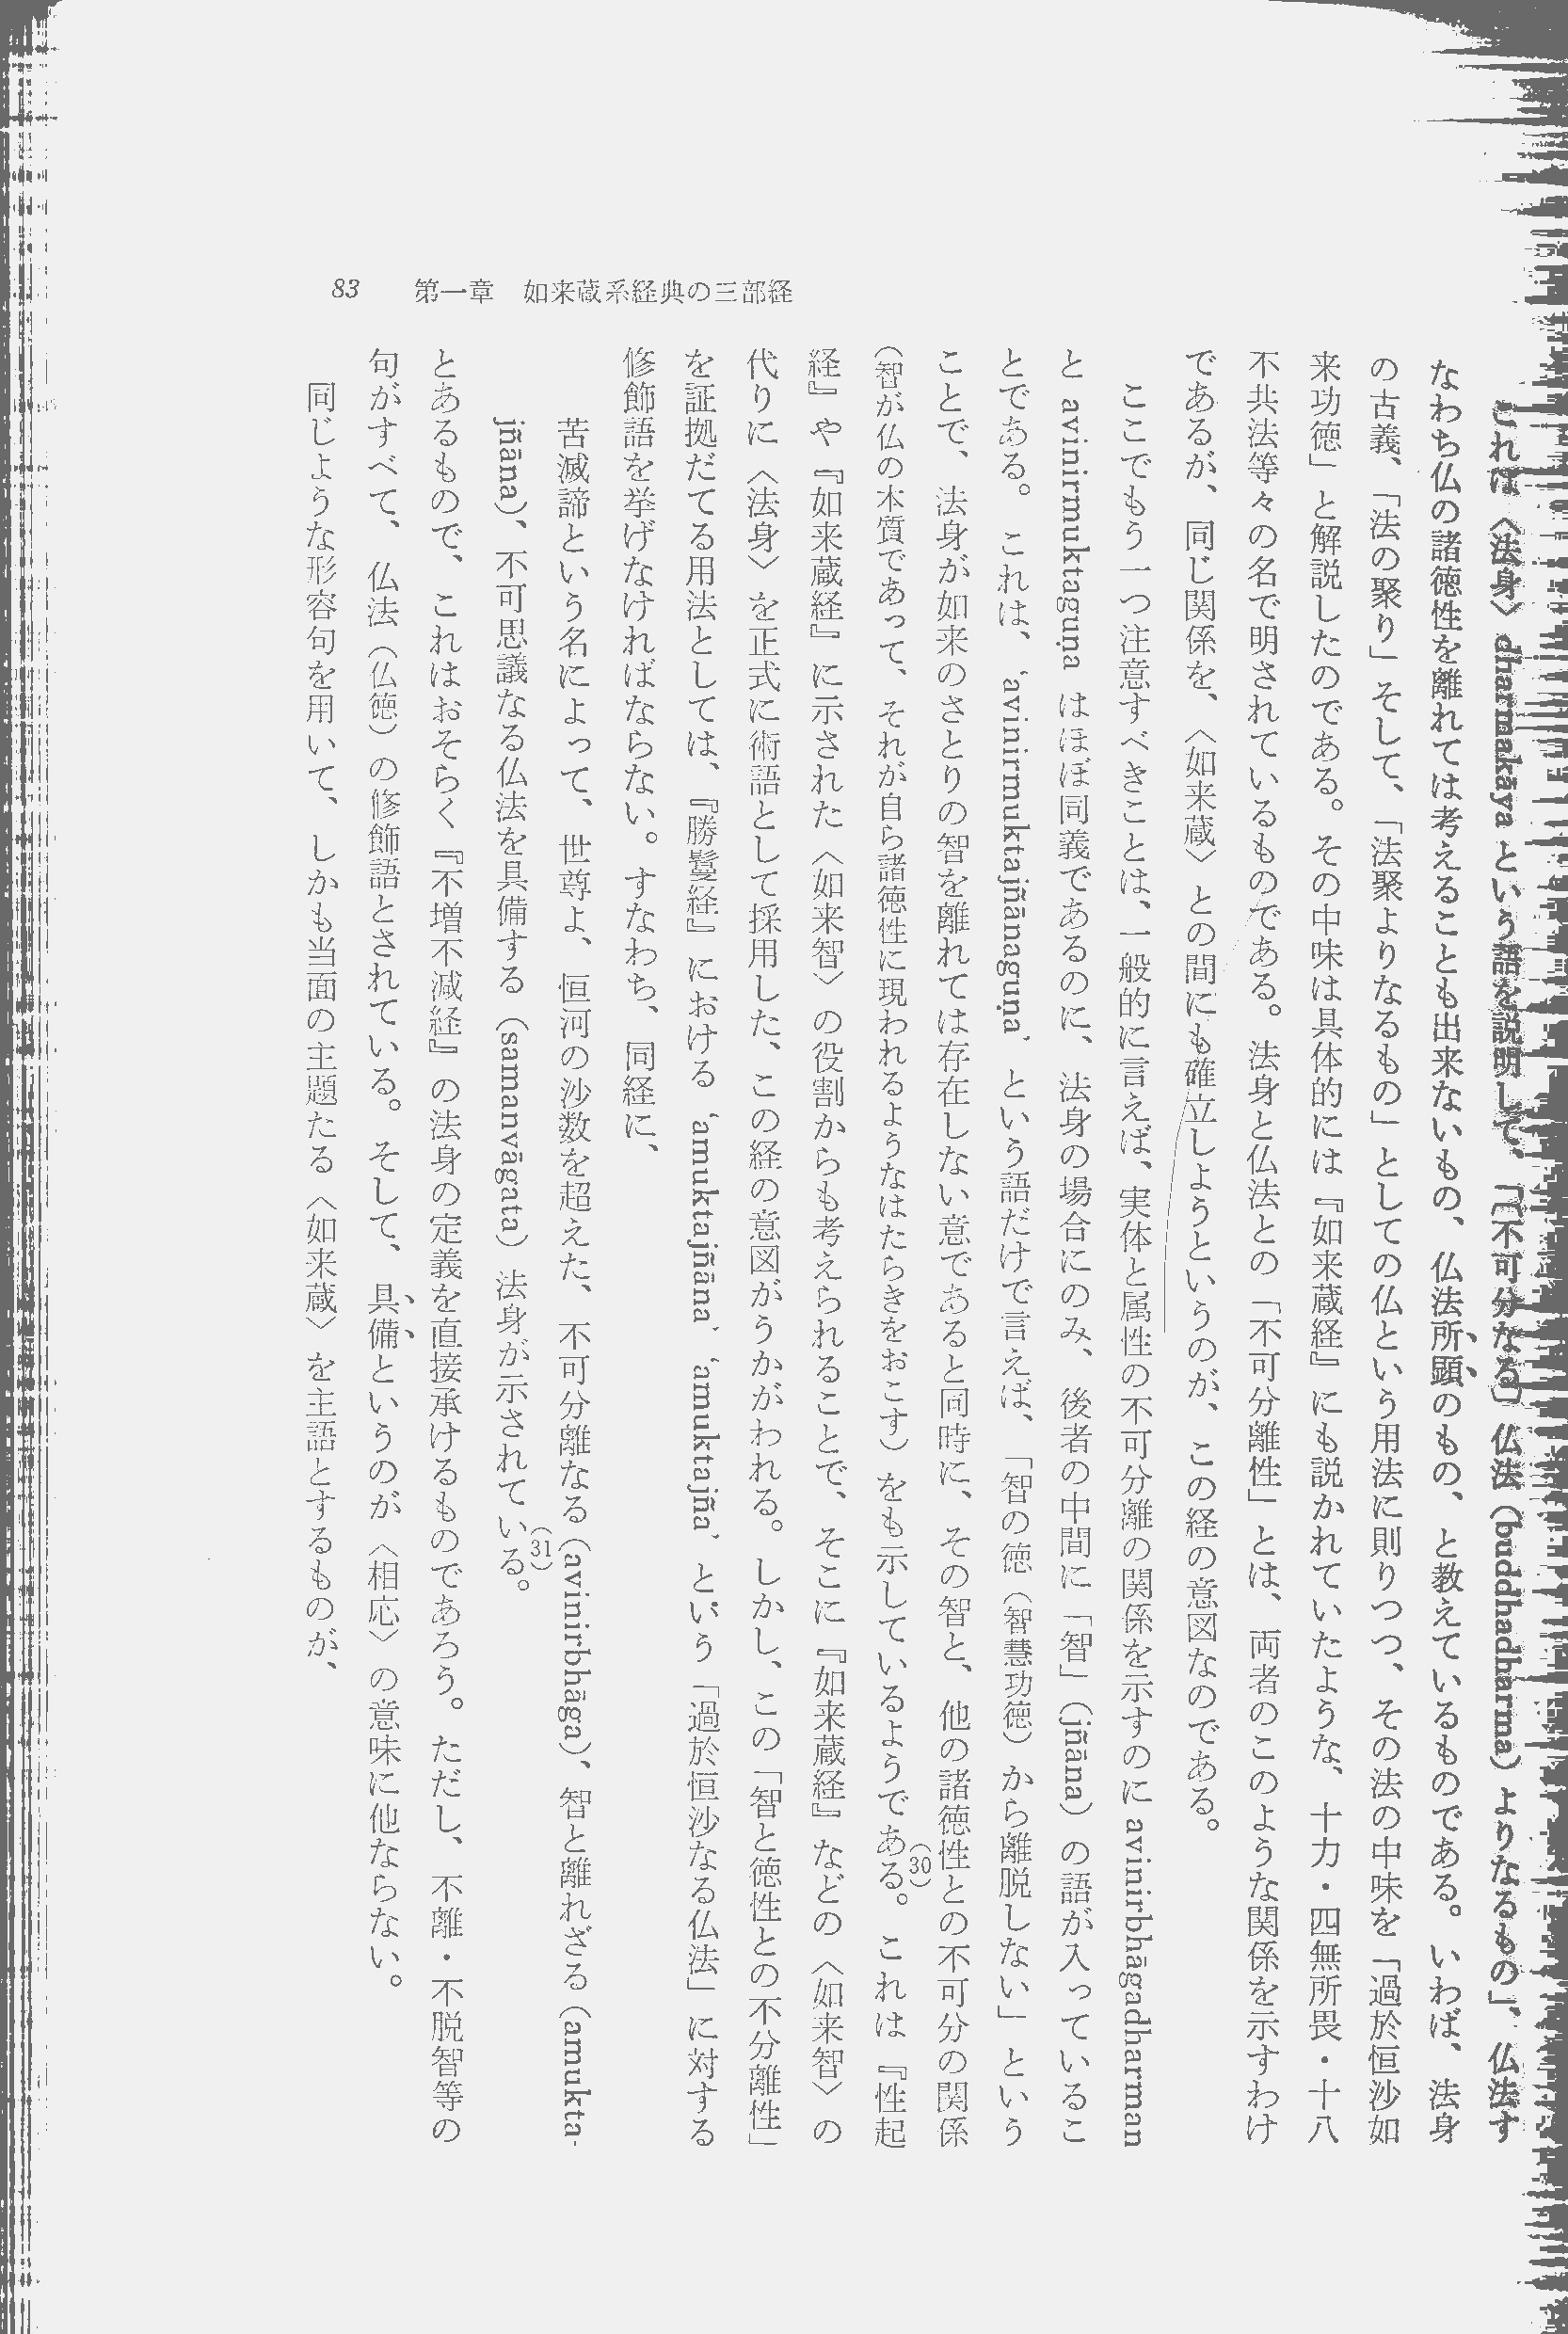 83　第一章　如来蔵系経典の三部経
これは〈法身〉dharmakāya という語を説明して、「(不可分なる)仏法（buddhadharma）よりなるもの」、仏法す
なわち仏の諸徳性を離れては考えることも出来ないもの、仏法所顕のもの、と教えているものである。いわば、法身
の古義、「法の聚り」そして、「法聚よりなるもの」としての仏という用法に則りつつ、その法の中味を「過於恒沙如
来功徳」と解説したのである。その中味は具体的には『如来蔵経』にも説かれていたような、十力・四無所畏・十八
不共法等々の名で明されているものである。法身と仏法との「不可分離性」とは、両者のこのような関係を示すわけ
であるが、同じ関係を、〈如来蔵〉との間にも確立しようというのが、この経の意図なのである。
ここでもう一つ注意すべきことは、一般的に言えば、実体と属性の不可分離の関係を示すのに avinirbhāgadharman
と avinirmuktaguṇa はほぼ同義であるのに、法身の場合にのみ、後者の中間に「智」（jñāna）の語が入っているこ
とである。これは、‘avinirmuktajñānaguṇa’ という語だけで言えば、「智の徳（智慧功徳）から離脱しない」という
ことで、法身が如来のさとりの智を離れては存在しない意であると同時に、その智と、他の諸徳性との不可分の関係
（智が仏の本質であって、それが自ら諸徳性に現われるようなはたらきをおこす）をも示しているようである。(30)これは『性起
経』や『如来蔵経』に示された〈如来智〉の役割からも考えられることで、そこに『如来蔵経』などの〈如来智〉の
代りに〈法身〉を正式に術語として採用した、この経の意図がうかがわれる。しかし、この「智と徳性との不分離性」
を証拠だてる用法としては、『勝鬘経』における ‘amuktajñāna’, ‘amuktajña’ という「過於恒沙なる仏法」に対する
修飾語を挙げなければならない。すなわち、同経に、
苦滅諦という名によって、世尊よ、恒河の沙数を超えた、不可分離なる（avinirbhāga）、智と離れざる（amukta-
jñāna）、不可思議なる仏法を具備する（samanvāgata）法身が示されている。(31)
とあるもので、これはおそらく『不増不減経』の法身の定義を直接承けるものであろう。ただし、不離・不脱智等の
句がすべて、仏法（仏徳）の修飾語とされている。そして、具備というのが〈相応〉の意味に他ならない。
同じような形容句を用いて、しかも当面の主題たる〈如来蔵〉を主語とするものが、